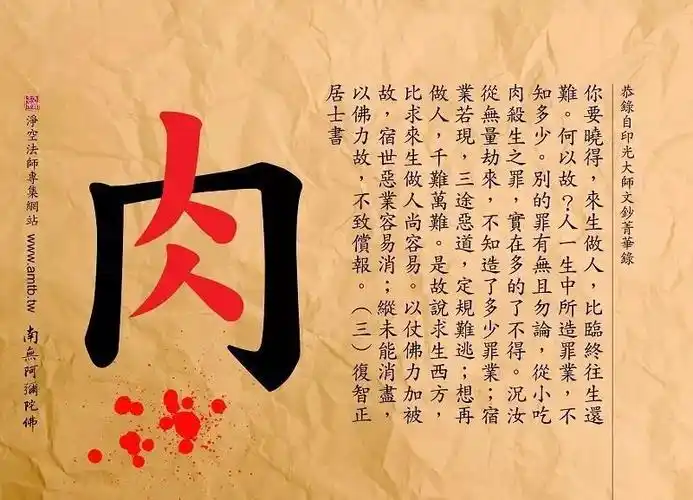 恭錄自印光大師文鈔菁華錄
你要曉得，來生做人，比臨終往生還
難。何以故？人一生中所造罪業，不
知多少。別的罪有無且勿論，從小吃
肉殺生之罪，實在多的了不得。況汝
從無量劫來，不知造了多少罪業；宿
業若現，三途惡道，定規難逃；想再
做人，千難萬難。是故說求生西方，
比求來生做人尚容易。以仗佛力加被
故，宿世惡業容易消；縱未能消盡，
以佛力故，不致償報。（三）復智正
居士書
肉
淨空法師專集網站 www.amtb.tw 南無阿彌陀佛